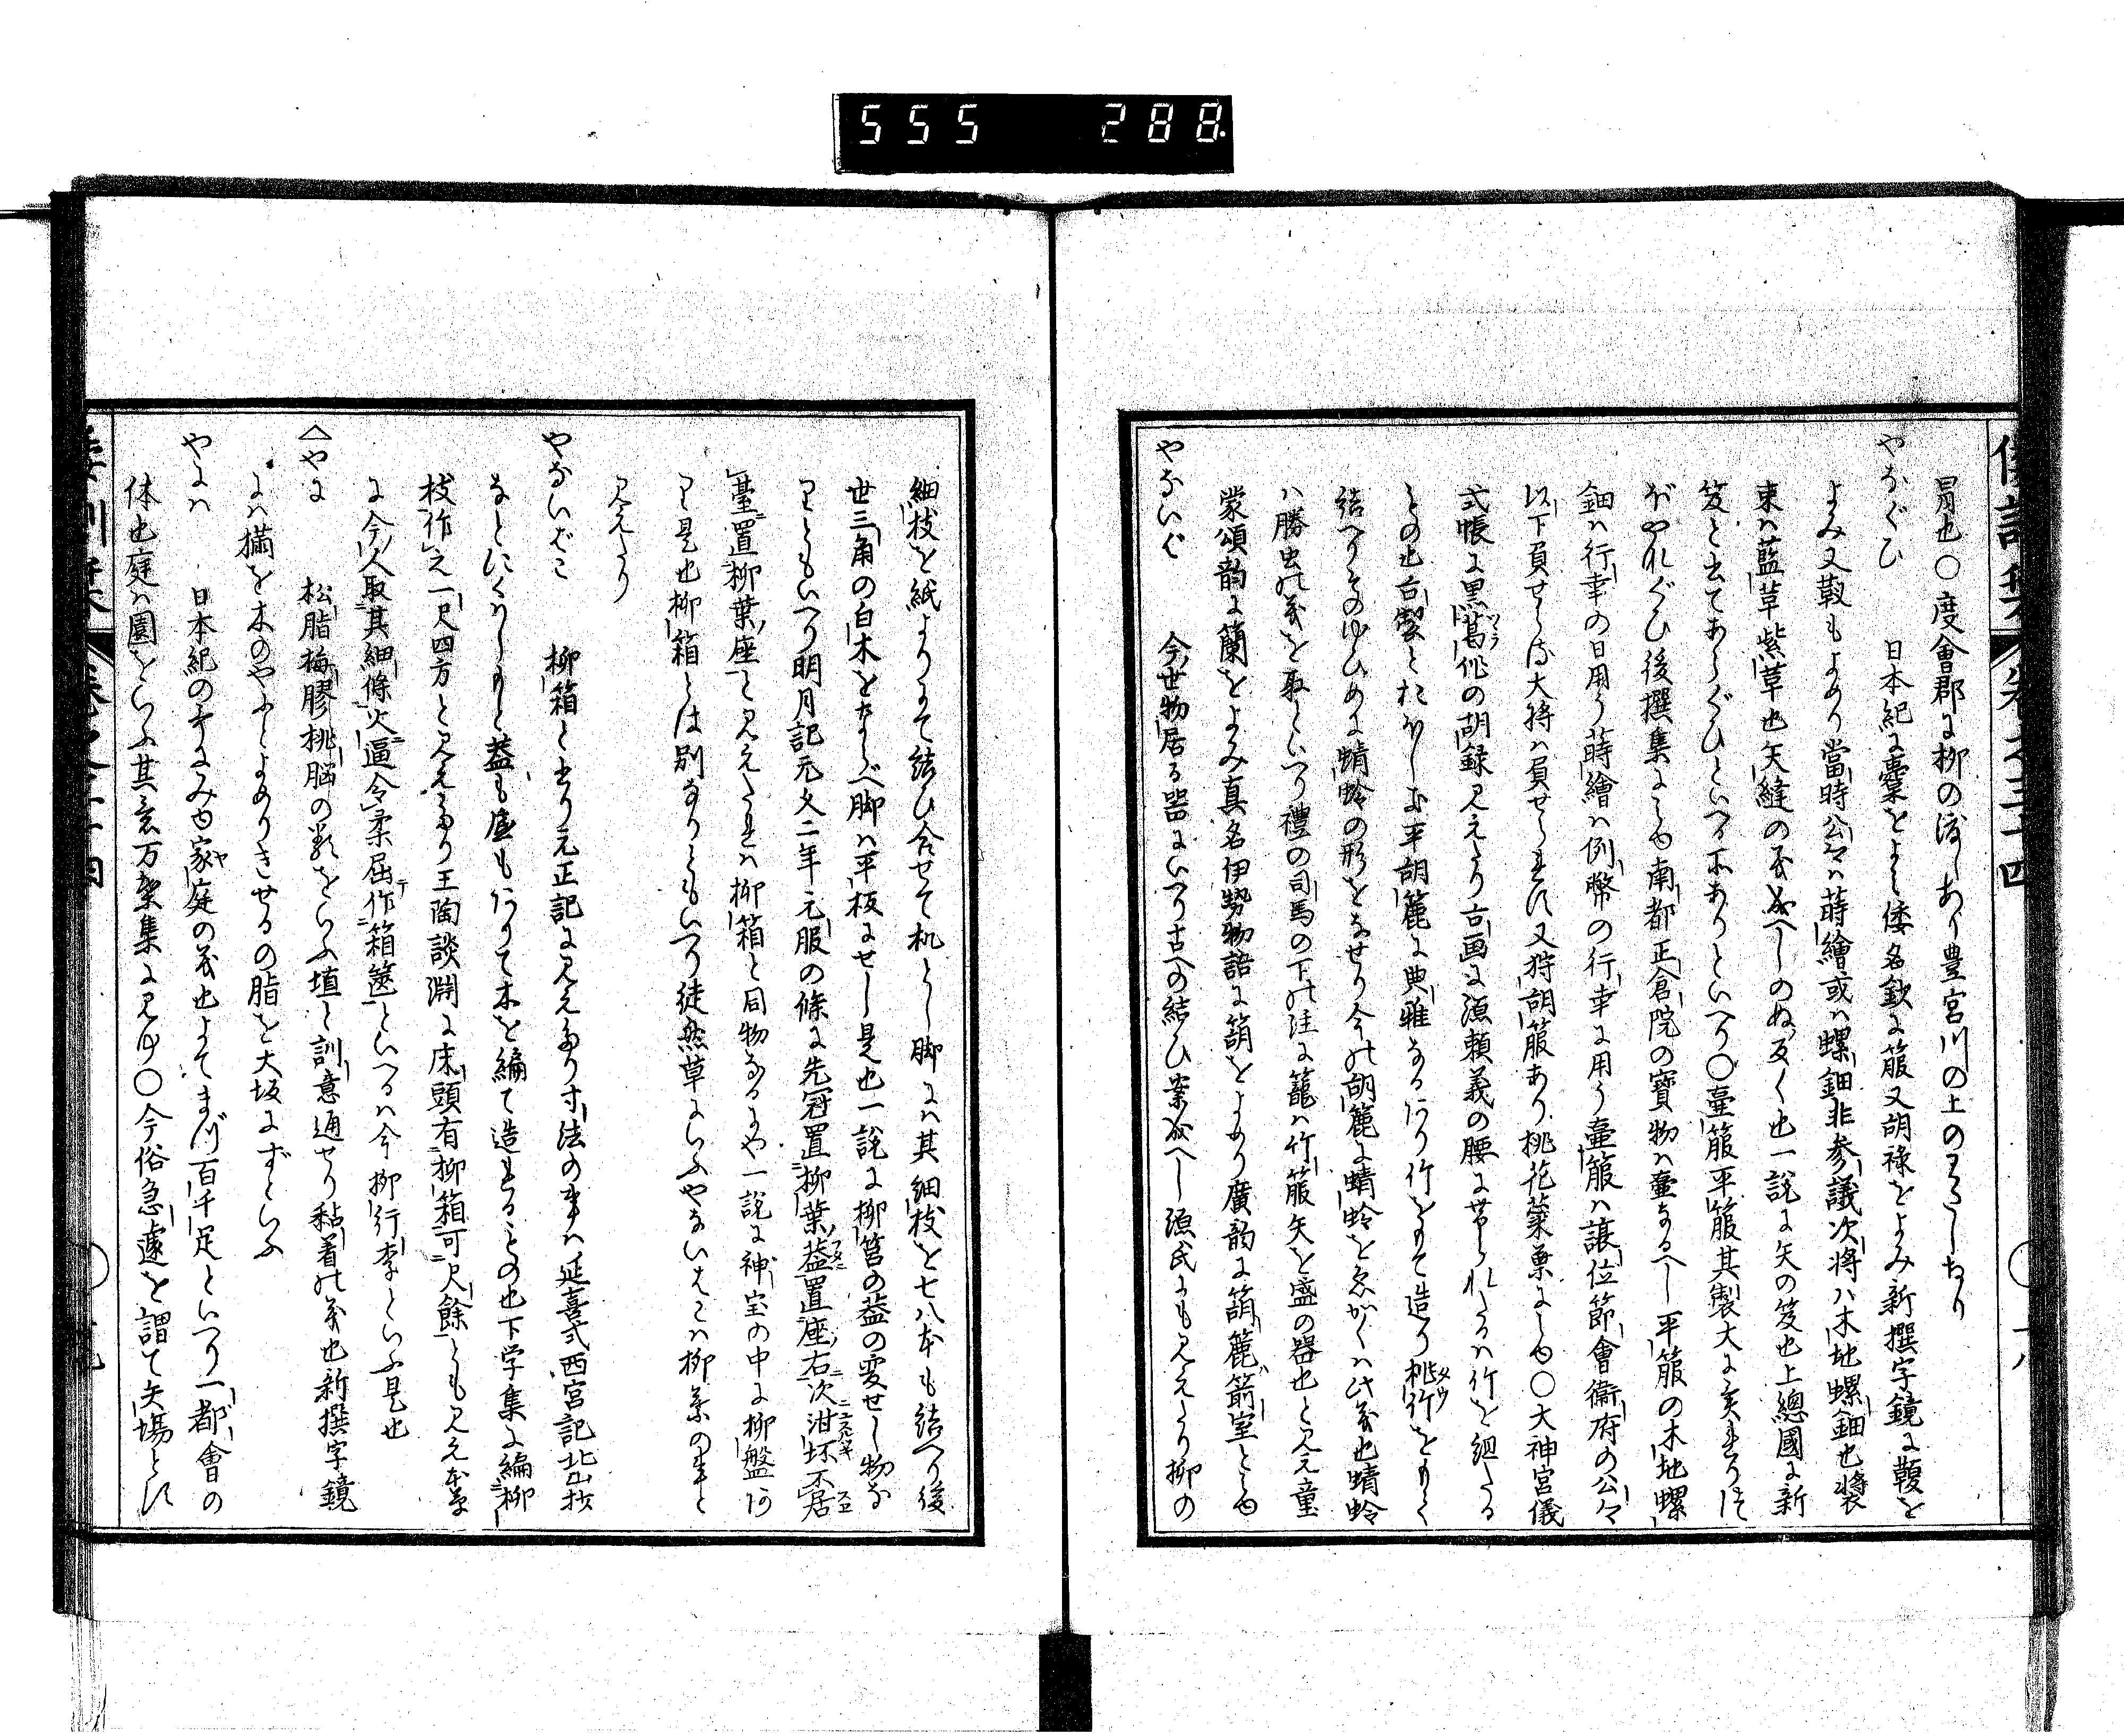 555 288.
冐也〇度會郡に柳の渡しあり豊宮川の上のわたしなり
やなぐひ 日本紀に橐をよみ倭名鈔に箙又胡祿をよみ新撰字鏡に鞁を
よみ又靫もよめり當時公卿は蒔繪或は螺鈿非参議次將は木地螺鈿也裝
束は藍草紫草也矢縫の義成へしのぬ反く也一説に矢の笈也上總國に新
笈と書てあらぐひといへる所ありといへり〇壷箙平箙其製大に異れりに
ぼやれぐひ後撰集にみゆ南都正倉院の寶物は壷なるへし平箙の木地螺
鈿は行幸の日用う蒔繪は例幣の行幸に用う壷箙は譲位節會衞府の公々
以下負せらる大將は負せられす又狩胡箙あり桃花蘂葉にみゆ〇大神宮儀
式帳に黒葛作の胡籙見えたり古画に源頼義の腰に帯られたるは竹を組たる
もの也古製とおほし又平胡簶に典雅なるあり竹をもて造り桃竹をもて
結へりそのゆひめに蜻蛉の形をなせり今の胡簶に蜻蛉をゑがくは此義也蜻蛉
は勝虫の義を取といへり禮の司馬の下の註に籠は竹箙矢を盛の器也と見え童
蒙頌韵に蘭をよみ真名伊勢物語に箶をよめり廣韵に箶簏箭室とみゆ
やないば 今世物居る器にいへり古への結ひ案成へし源氏にも見えたり柳の
細枝を紙よりにて結ひ合せて机とし脚には其細枝を七八本も結へり後
世三角の白木をならべ脚は平板にせし是也一説に柳筥の蓋の変せし物な
りともいへり明月記元久二年元服の條に先冠置柳葉蓋置座右次泔坏居
臺置柳葉座と見えたれは柳箱と同物なるにや一説に神宝の中に柳盤あ
り是也柳箱とは別なりともいへり徒然草にいふやないはこは柳葉の事と
見えたり
やないばこ 柳箱と書り元正記に見えたり寸法の事は延喜式西宮記北山抄
なとにくわしもと蓋も盧もありて木を編て造れるもの也下学集に編柳
枝作之一尺四方と見えたり王陶談淵に床頭有柳箱可尺餘とも見え本草
に今人取其細條火逼令柔屈作箱篋といへるは今柳行李といふ是也
へやに 松脂梅膠桃脳の類をいふ埴と訓意通せり黏着の義也新撰字鏡
には樆を木のやにとよめりきせるの脂を大坂にずといふ
やには 日本紀の哥にみゆ家庭の義也よてまづ百千足といへり一都會の
体也庭は園をいふ其意万葉集に見ゆ〇今俗急遽を謂て矢塲とす